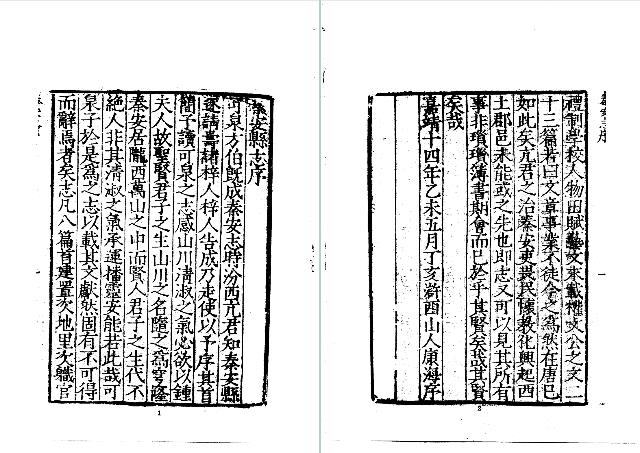 秦安縣志序
可泉方伯既成秦安志時汾西亢君知秦安縣
遂請壽諸梓人梓人告成乃走使以予序其首
簡予讀可泉之志感山川清淑之氣必欲以鍾
夫人故聖賢君子之生山川之名隨之為穹隆
秦安居隴西萬山之中而賢人君子之生代不
絕人非其清淑之氣承運播靈安能若此哉可
泉子於是為之志以載其文獻然固有不可得
而辭焉者矣志凡八篇首建置次地里次職官
1
禮制學校人物田賦藝文末載權文公之文二
十三篇若曰文章事業不徒合之為然在唐已
如此矣亢君之治秦安吏畏民懷教化興起西
土郡邑未能或之先也即志又可以見其所有
事非瑣瑣簿書期會而已於乎其賢矣哉其賢
矣哉
嘉靖十四年乙未五月丁亥滸西山人康海序
2